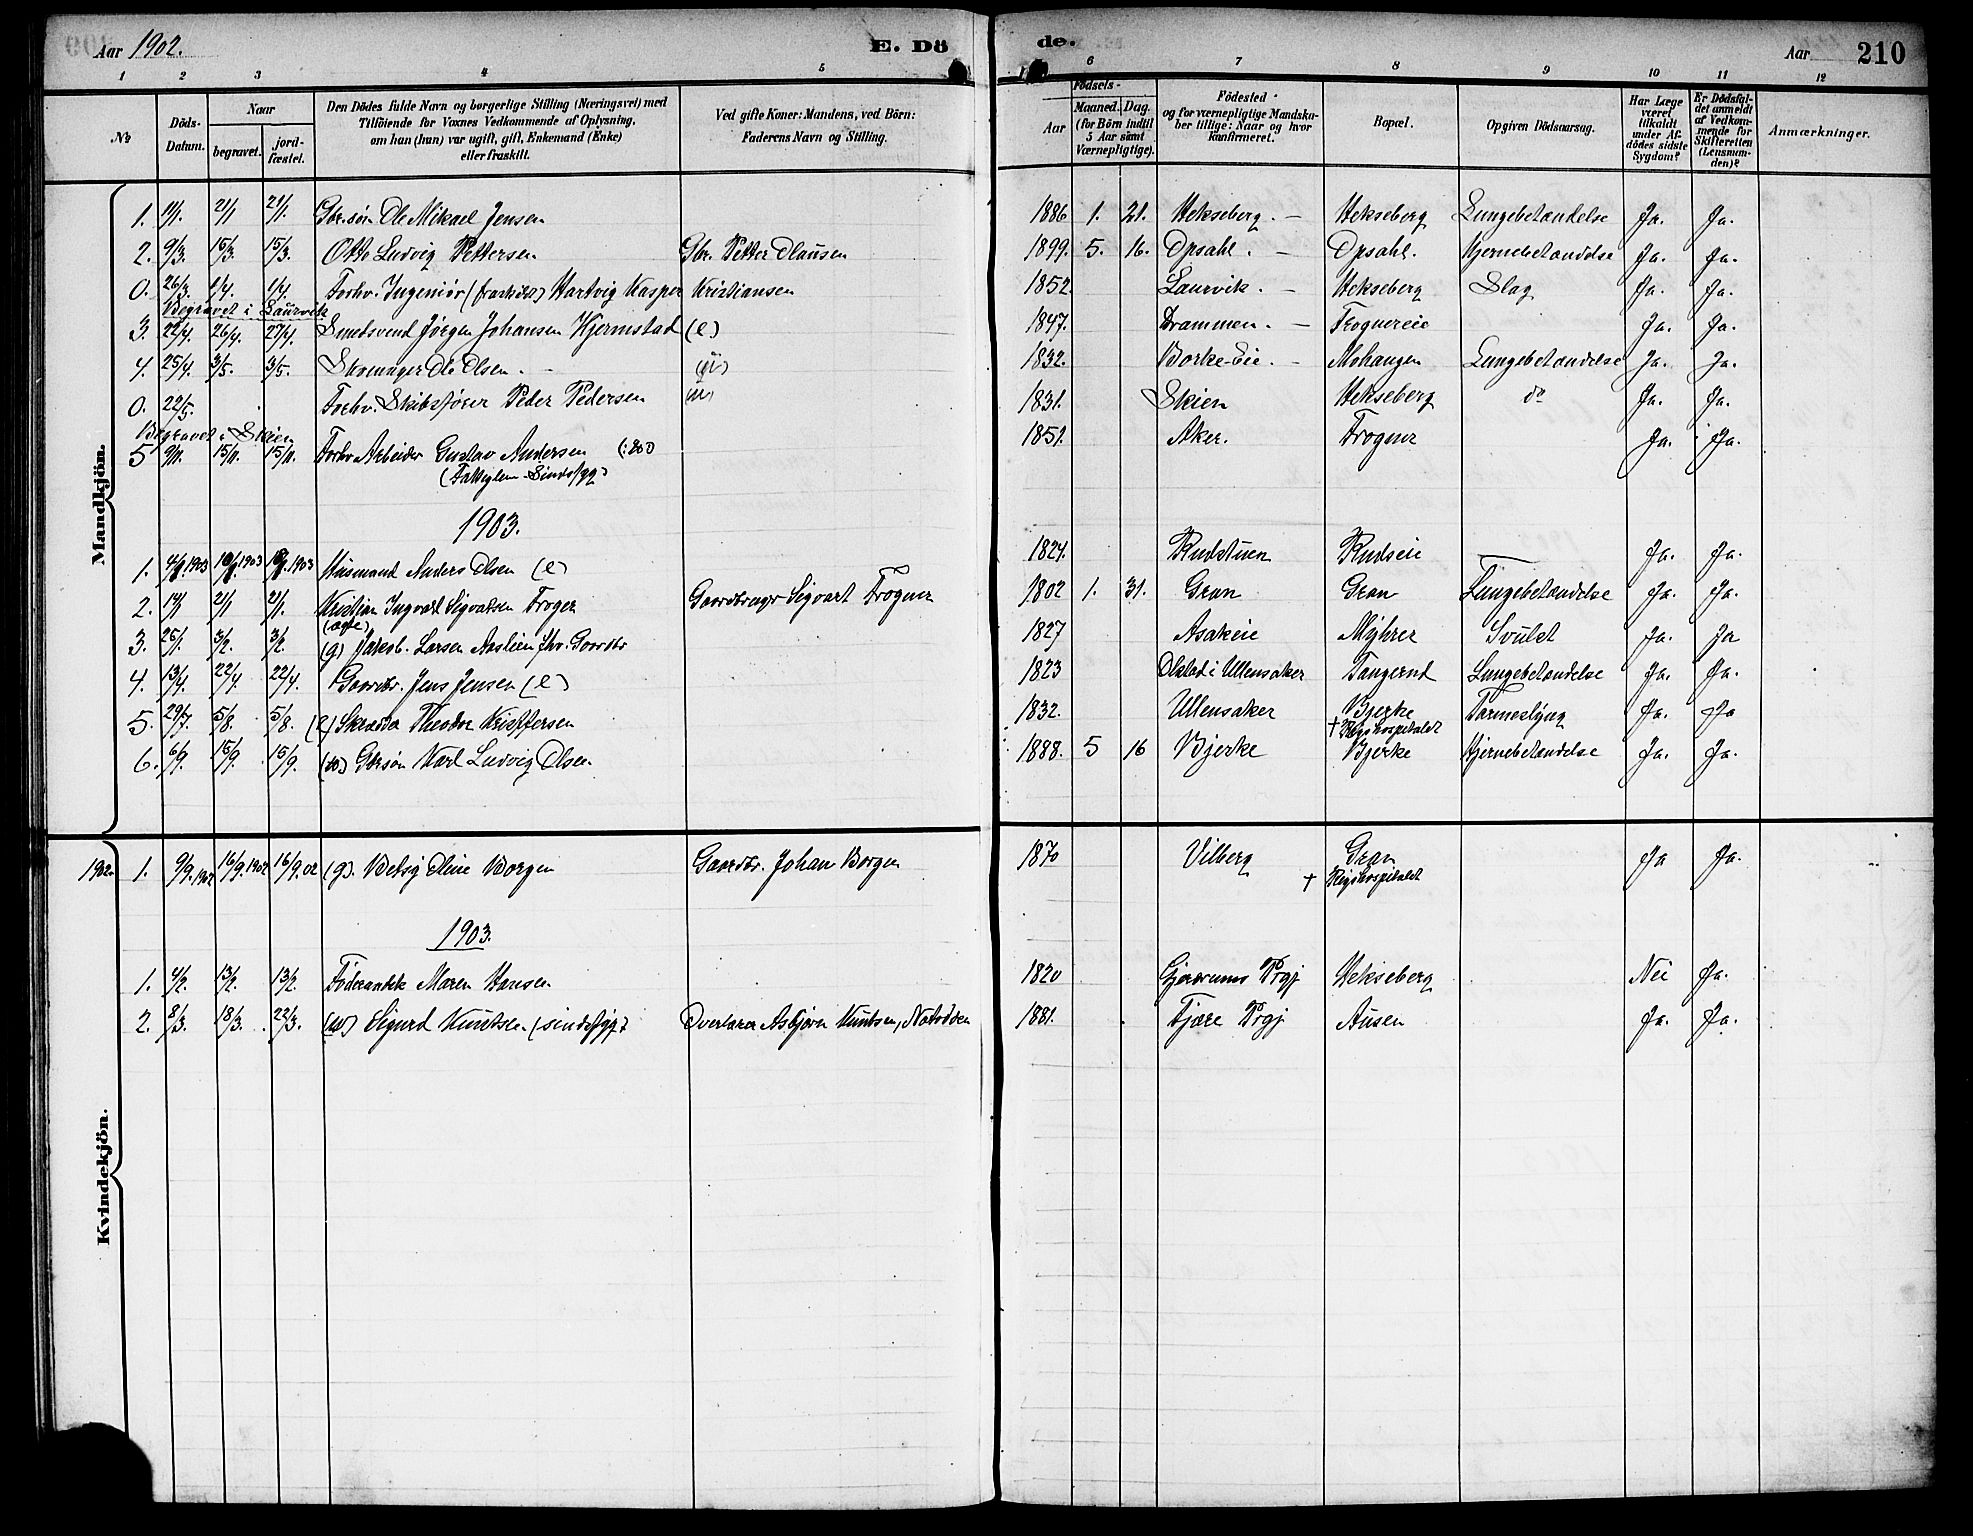 Aar 1902. E. Dö de. Aar 210
1 2 3 4 5 6 7 8 9 10 11 12
No
Döds-Datum.
Naar
begravet. jord-fæstet.
Den Dödes fulde Navn og borgerlige Stilling (Næringsvei) med
Tilföiende for Voxnes Vedkommende af Oplysning,
om han (hun) var ugift, gift, Enkemand (Enke)
eller fraskilt.
Ved gifte Koner: Mandens, ved Börn:
Faderens Navn og Stilling.
Födsels-
Aar Maaned. Dag.
(for Börn indtil
5 Aar samt
Værnepligtige).
Födested
og for værnepligtige Mandska-
ber tillige: Naar og hvor
konfirmeret.
Bopæl.
Opgiven Dödsaarsag.
Har Læge
været
tilkaldt
under Af-
dödes sidste
Sygdom?
Er Dödsfal-
det anmeldt
af Vedkom-
mende for
Skifteretten
(Lensman-
den)?
Anmærkninger.
Mandkjön.
1. 11/1. 21/1 21/1. Gbr.søn Ole Mikael Jensen 1886 1. 21. Hekseberg. – Hekseberg Lungebetændelse Ja. Ja.
2. 9/3. 15/3. 15/3. Otto Ludvig Pettersen Gbr. Petter Olausen 1899. 5. 16. Opsahl. – Opsahl. Hjernebetændelse Ja. Ja.
0. 26/3. 1/4. 1/4. Forhv. Ingeniör (fraskilt) Hartvig Kasper Kristiansen 1852. Laurvik. – Hekseberg Slag Ja. Ja.
Begravet i Laurvik
3. 22/4. 26/4. 27/4. Smedsvend Jørgen Johansen Hjermstad (e) 1847. Drammen. – Frognereie Ja. Ja.
4. 25/4. 3/5. 3/5. Skomager Ole Olsen. – 1832. Borke-Eie. – Mohaugen Lungebetændelse Ja. Ja.
0. 22/5. Forhv. Skibsfører Peder Pedersen 1831. Skien Hekseberg do Ja. Ja.
Begravet i Skien
5 9/11. 15/11. 15/11. Forhv. Arbeider Gustav Andersen 1851. Aker. Frogner Ja. Ja.
(Fattiglem – Sindssyg)
1903.
1. 1903 1903 1903 Husmand Anders Olsen (e) 1824. Rudstuen Rudseie Ja. Ja.
2. 14/1 21/1 21/1. Kristian Ingvart Sigvartsen Frogner Gaardbruger Sigvart Frogner 1802 1. 31. Gran Gran Lungebetændelse Ja. Ja.
3. 25/1. 3/2. 3/2. (g) Jakob Larsen Aaslien fhv. Gaardbr 1827 Asakeie Myhrer Svulst Ja. Ja
4. 13/4. 22/4. 22/4. Gaardbr. Jens Jensen (e) 1823 Olstad i Ullensaker Tangerud Lungebetændelse Ja. Ja.
5. 29/7. 5/8. 5/8. (e) Skrædder Theodor Kristffersen 1832. Ullensaker Bjerke Tarmeslyng Ja. Ja
† Rigshospitalet
6. 6/9. 15/9. 15/9. Gbrsøn Karl Ludvig Olsen 1888. 5 16 Bjerke Bjerke Hjernebetændelse Ja. Ja.
Kvindekjön.
1902. 1. 9/9. 1902 16/9. 1902 16/9. 02 (g). Betsy Oline Borgen Gaardbr. Johan Borgen 1870 Vilberg Gran Ja Ja.
† Rigshospitalet
1903.
1. 4/2. 13/2. 13/2. Föderaadsk Maren Hansen 1820 Gjerdrums Prgj Hekseberg Nei Ja.
2. 8/3. 18/3. 22/3. Sigurd Knutsen (sindssyg) Overlærer Asbjørn Knutsen, Notodden 1881. Fjære Prgj Ausen Ja. Ja.